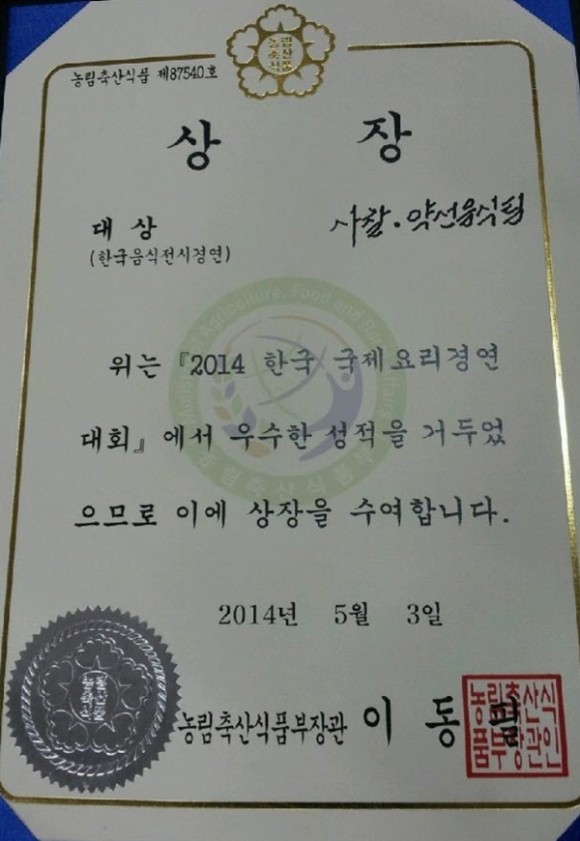 농림
축산
식품
농림축산식품 제87540호
상 장
대 상
(한국음식전시경연)
사찰·약선음식팀
위는 『2014 한국 국제요리경연
대회』에서 우수한 성적을 거두었
으므로 이에 상장을 수여합니다.
2014년 5월 3일
농림축산식품부장관 이 동 필
농림축산식
품부장관인
Agriculture, Food and
농림축산식품부